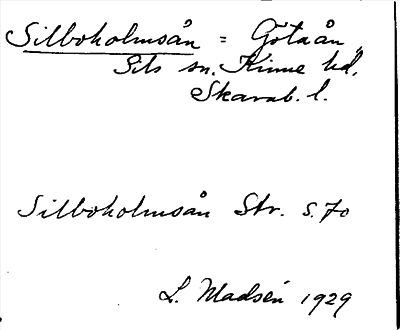 Silboholmsån = Götaån
Sils sn. Kinne hd,
Skarab. l.
Silboholmsån Str. S. 70
L. Madsén 1929